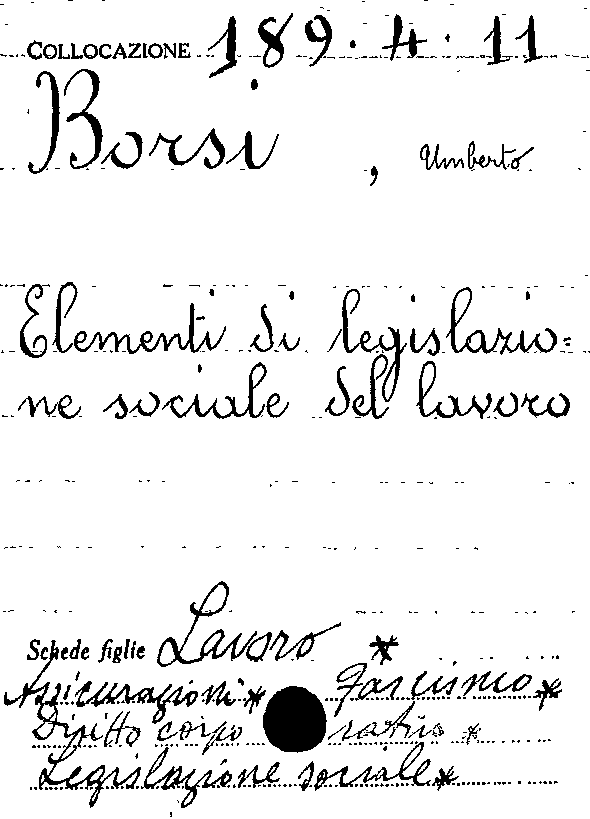 COLLOCAZIONE 189.4.11
Borsi, Umberto
Elementi di legislazio=
ne sociale del lavoro
Schede figlie Lavoro *
Assicurazioni * Fascismo *
Diritto corporativo *
Legislazione sociale *